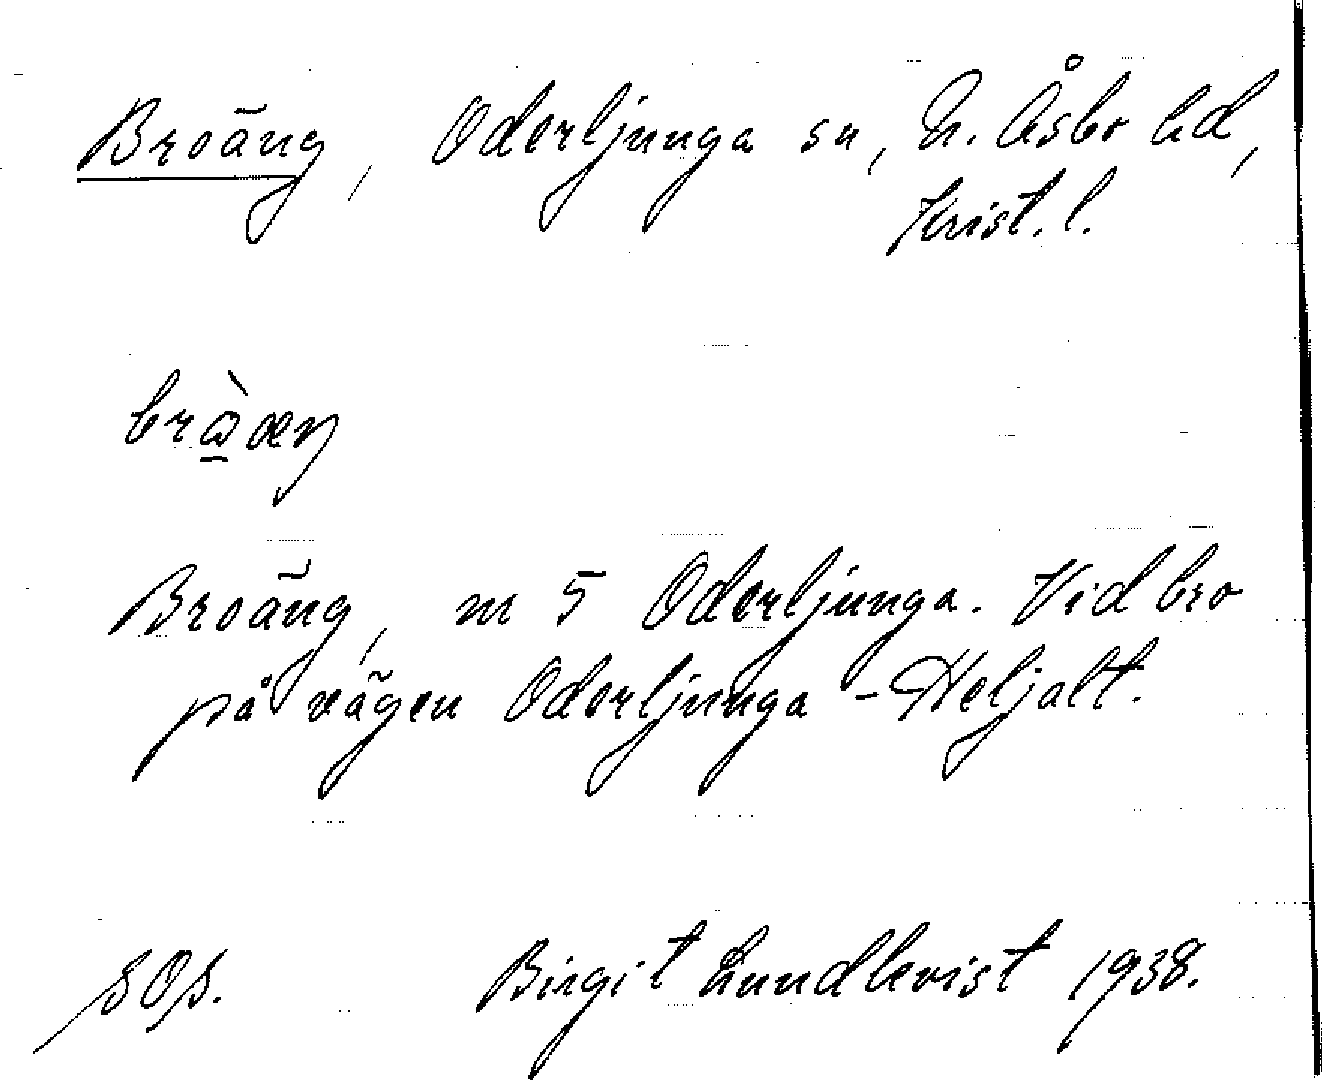 Broäng, Oderljunga sn, N. Åsbo hd,
Krist. l.
Broäng, m 5 Oderljunga. Vid bro
på vägen Oderljunga - Heljalt.
Birgit Lundkvist 1938.